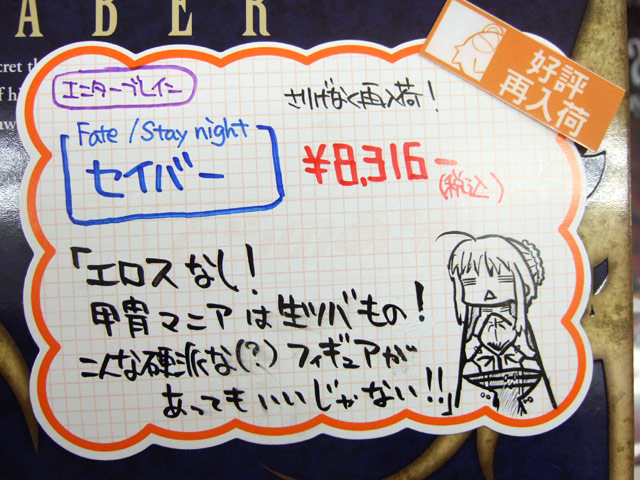 ABER
cret th
of hi
aw
エンターブレイン
さりげなく再入荷!
好評
再入荷
Fate/Stay night
セイバー
¥8,316-
(税込)
「エロスなし!
甲冑マニアは生ツバもの!
こんな硬派な(?)フィギュアが
あってもいいじゃない!!」